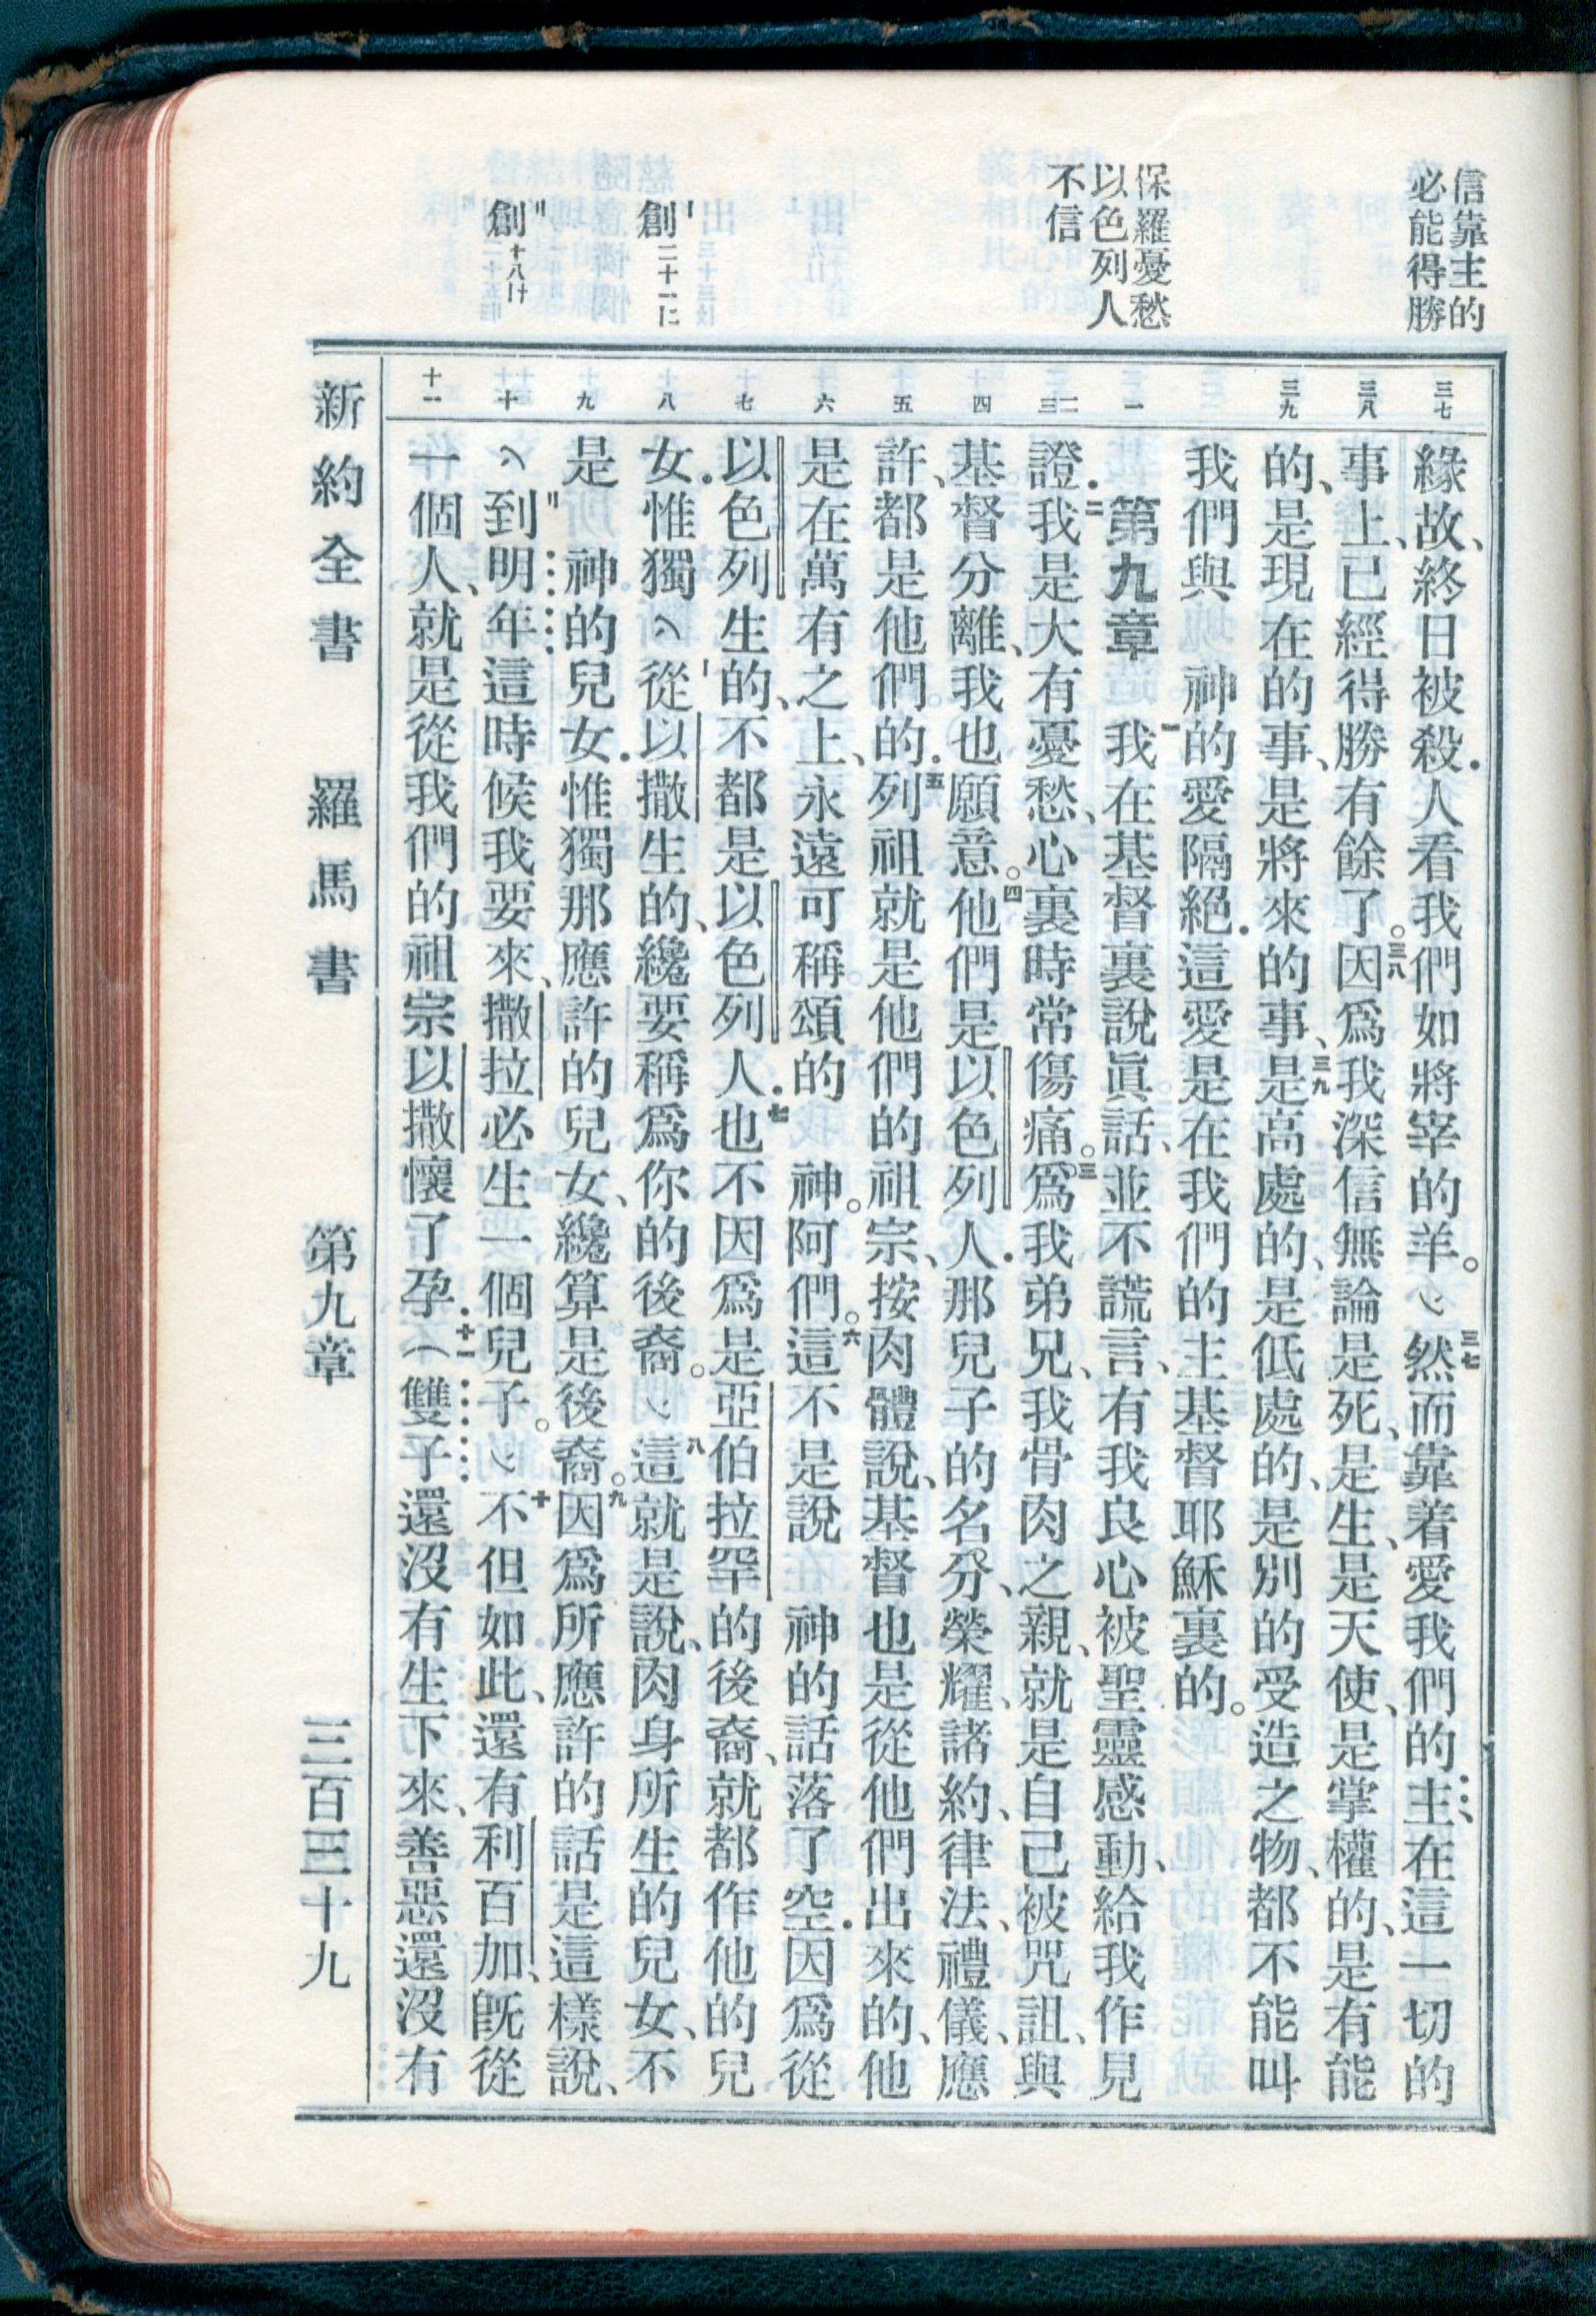 信靠主的
必能得勝
保羅憂愁
以色列人
不信
創二十一
創十八
三七
三八
三九
一
二
三
四
五
六
七
八
九
十
十一
緣故、終日被殺．人看我們如將宰的羊。﹀三七然而靠着愛我們的主在這一切的
事上、已經得勝有餘了。三八因爲我深信無論是死、是生、是天使、是掌權的、是有能
的、是現在的事、是將來的事、三九是高處的、是低處的、是別的受造之物、都不能叫
我們與　神的愛隔絕．這愛是在我們的主基督耶穌裏的。
第九章　一我在基督裏說眞話、並不謊言、有我良心被聖靈感動、給我作見
證．二我是大有憂愁、心裏時常傷痛。三爲我弟兄、我骨肉之親、就是自己被咒詛、與
基督分離、我也願意。四他們是以色列人．那兒子的名分、榮耀、諸約、律法、禮儀、應
許、都是他們的．五列祖就是他們的祖宗、按肉體說、基督也是從他們出來的、他
是在萬有之上、永遠可稱頌的　神。阿們。六這不是說　神的話落了空．因爲從
以色列生的、不都是以色列人．七也不因爲是亞伯拉罕的後裔、就都作他的兒
女．惟獨︿從以撒生的、纔要稱爲你的後裔。﹀八這就是說、肉身所生的兒女、不
是　神的兒女．惟獨那應許的兒女、纔算是後裔。九因爲所應許的話是這樣說、
︿到明年這時候我要來、撒拉必生一個兒子。﹀十不但如此、還有利百加、旣從
一個人、就是從我們的祖宗以撒懷了孕．十一（雙子還沒有生下來、善惡還沒有
新約全書　羅馬書　第九章　三百三十九